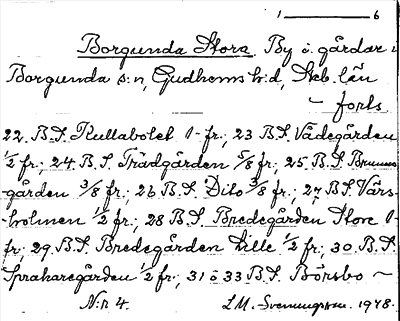 1 — 6
Borgunda Stora. By o. gårdar i
Borgunda s:n, Gudhems h:d, Skb. län
— forts.
22. B.S. Kullabolet 1- fr; 23 B.S. Vådegården
1/2 fr; 24. B.S. Trädgården 5/8 fr; 25. B.S. Brunns-
gården 3/8 fr; 26 B.S. Dito 3/8 fr; 27 B.S. Värs-
-holmen 1/2 fr; 28 B.S. Bredegården Store 1-
fr; 29. B.S. Bredegården Lille 1/2 fr; 30. B.S.
Spraharegården 1/2 fr; 31 o 33 B.S. Börsbo ~
N:r 4. L.M. Svenungsson. 1948.